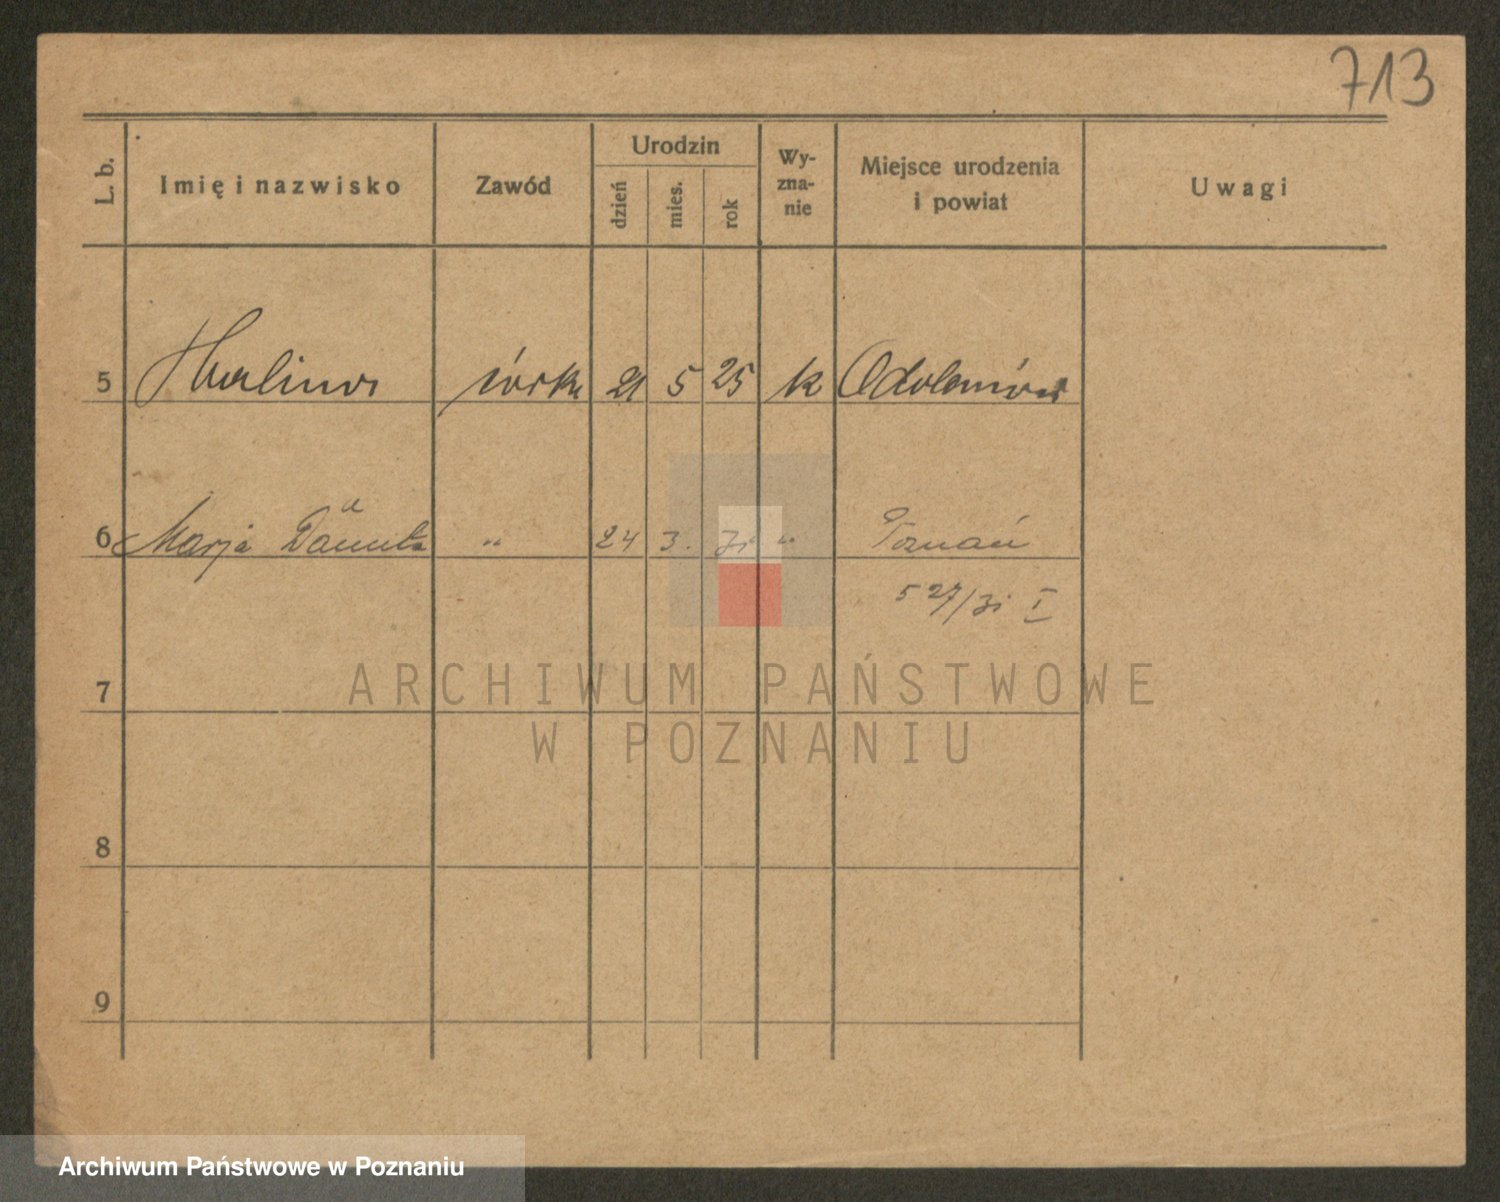 713
L. b.
Imię i nazwisko
Zawód
Urodzin
dzień
mies.
rok
Wy-
zna-
nie
Miejsce urodzenia
i powiat
Uwagi
5 Halina córka 21 5 25 k Odolanów
6 Marja Danuta " 24 3. 31 " Poznań
527/31 I
7
8
9
ARCHIWUM PAŃSTWOWE
W POZNANIU
Archiwum Państwowe w Poznaniu